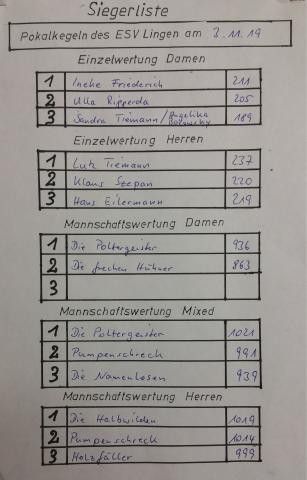 Siegerliste
Pokalkegeln des ESV Lingen am 3.11.19
Einzelwertung Damen
1 Ineke Friederich 211
2 Ulla Ripperda 205
3 Sandra Tiemann/Angelika 189
Einzelwertung Herren
1 Lutz Tiemann 237
2 Klaus Szepan 220
3 Hans Eilermann 219
Mannschaftswertung Damen
1 Die Poltergeister 936
2 Die frechen Hühner 863
3
Mannschaftswertung Mixed
1 Die Poltergeister 1021
2 Pumpenschreck 991
3 Die Namenlosen 939
Mannschaftswertung Herren
1 Die Halbwilden 1019
2 Pumpenschreck 1014
3 Holzfäller 999